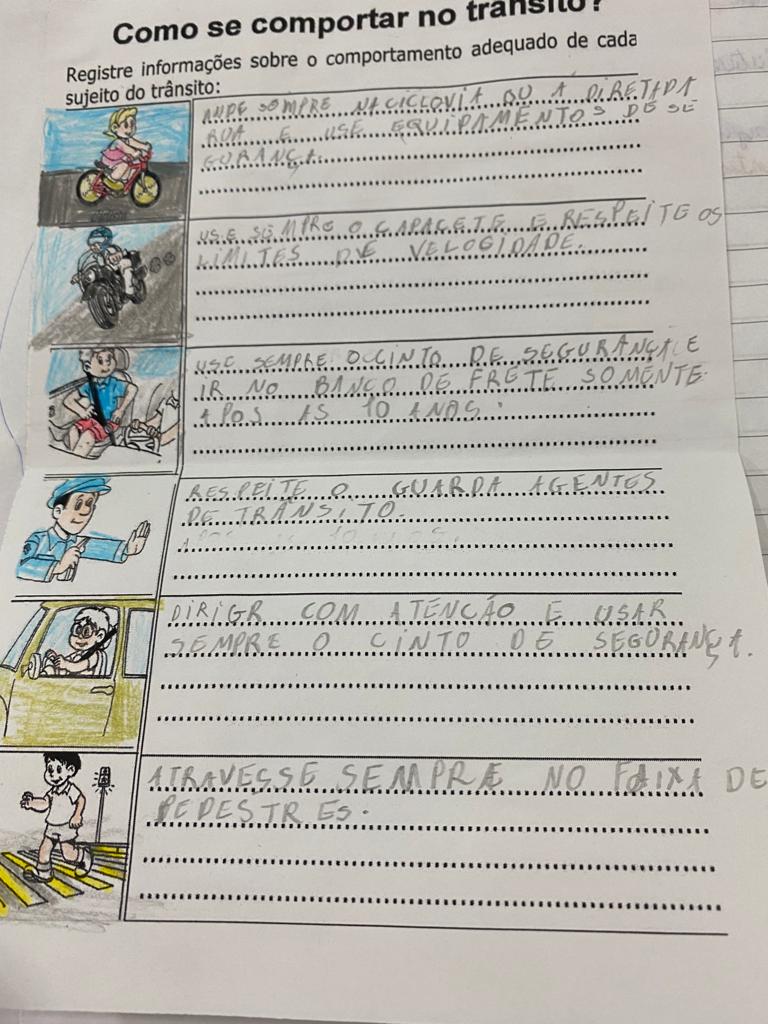 Como se comportar no trânsito?
Registre informações sobre o comportamento adequado de cada
sujeito do trânsito:
ANDE SEMPRE NA CICLOVIA OU A DIRETADA
RUA E USE EQUIPAMENTOS DE SE
GURANÇA.
USE SEMPRE O CAPACETE E RESPEITE OS
LIMITES DE VELOGIDADE.
USE SEMPRE O CINTO DE SEGURANÇA E
IR NO BANCO DE FRETE SOMENTE
APOS AS 10 ANOS.
RESPEITE O GUARDA AGENTES
DE TRÂNSITO.
DIRIGR COM ATENCÃO E USAR
SEMPRE O CINTO DE SEGURANÇA.
ATRAVESSE SEMPRE NO FAIXA DE
PEDESTRES.